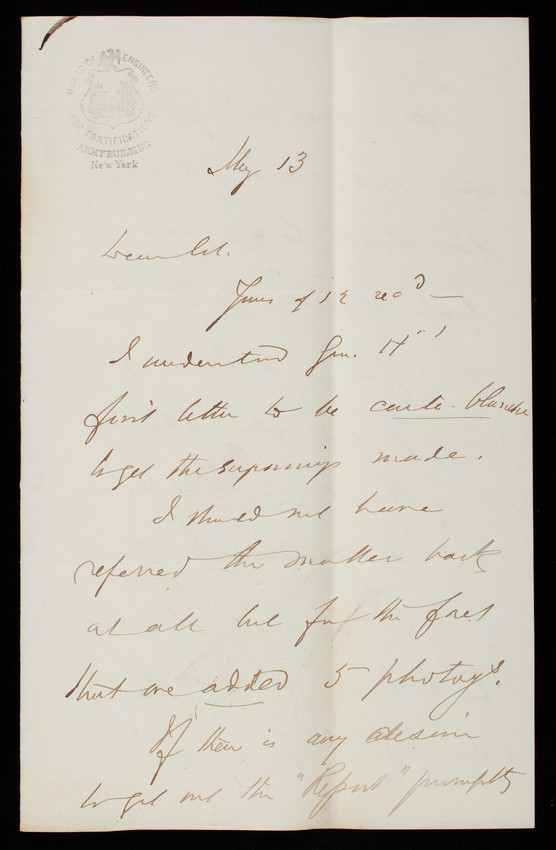 BOARD OF ENGINEERS
FOR FORTIFICATIONS
ARMY BUILDING
New York
May 13
Dear Col.
Yours of 12 recd —
I understand Gen. H's
first letter to be carte-blanche
to get the made.
I should not have
referred the matter back
at all but for the fact
that we added 5 photogs.
If there is any desire
to get out the "Report" promptly